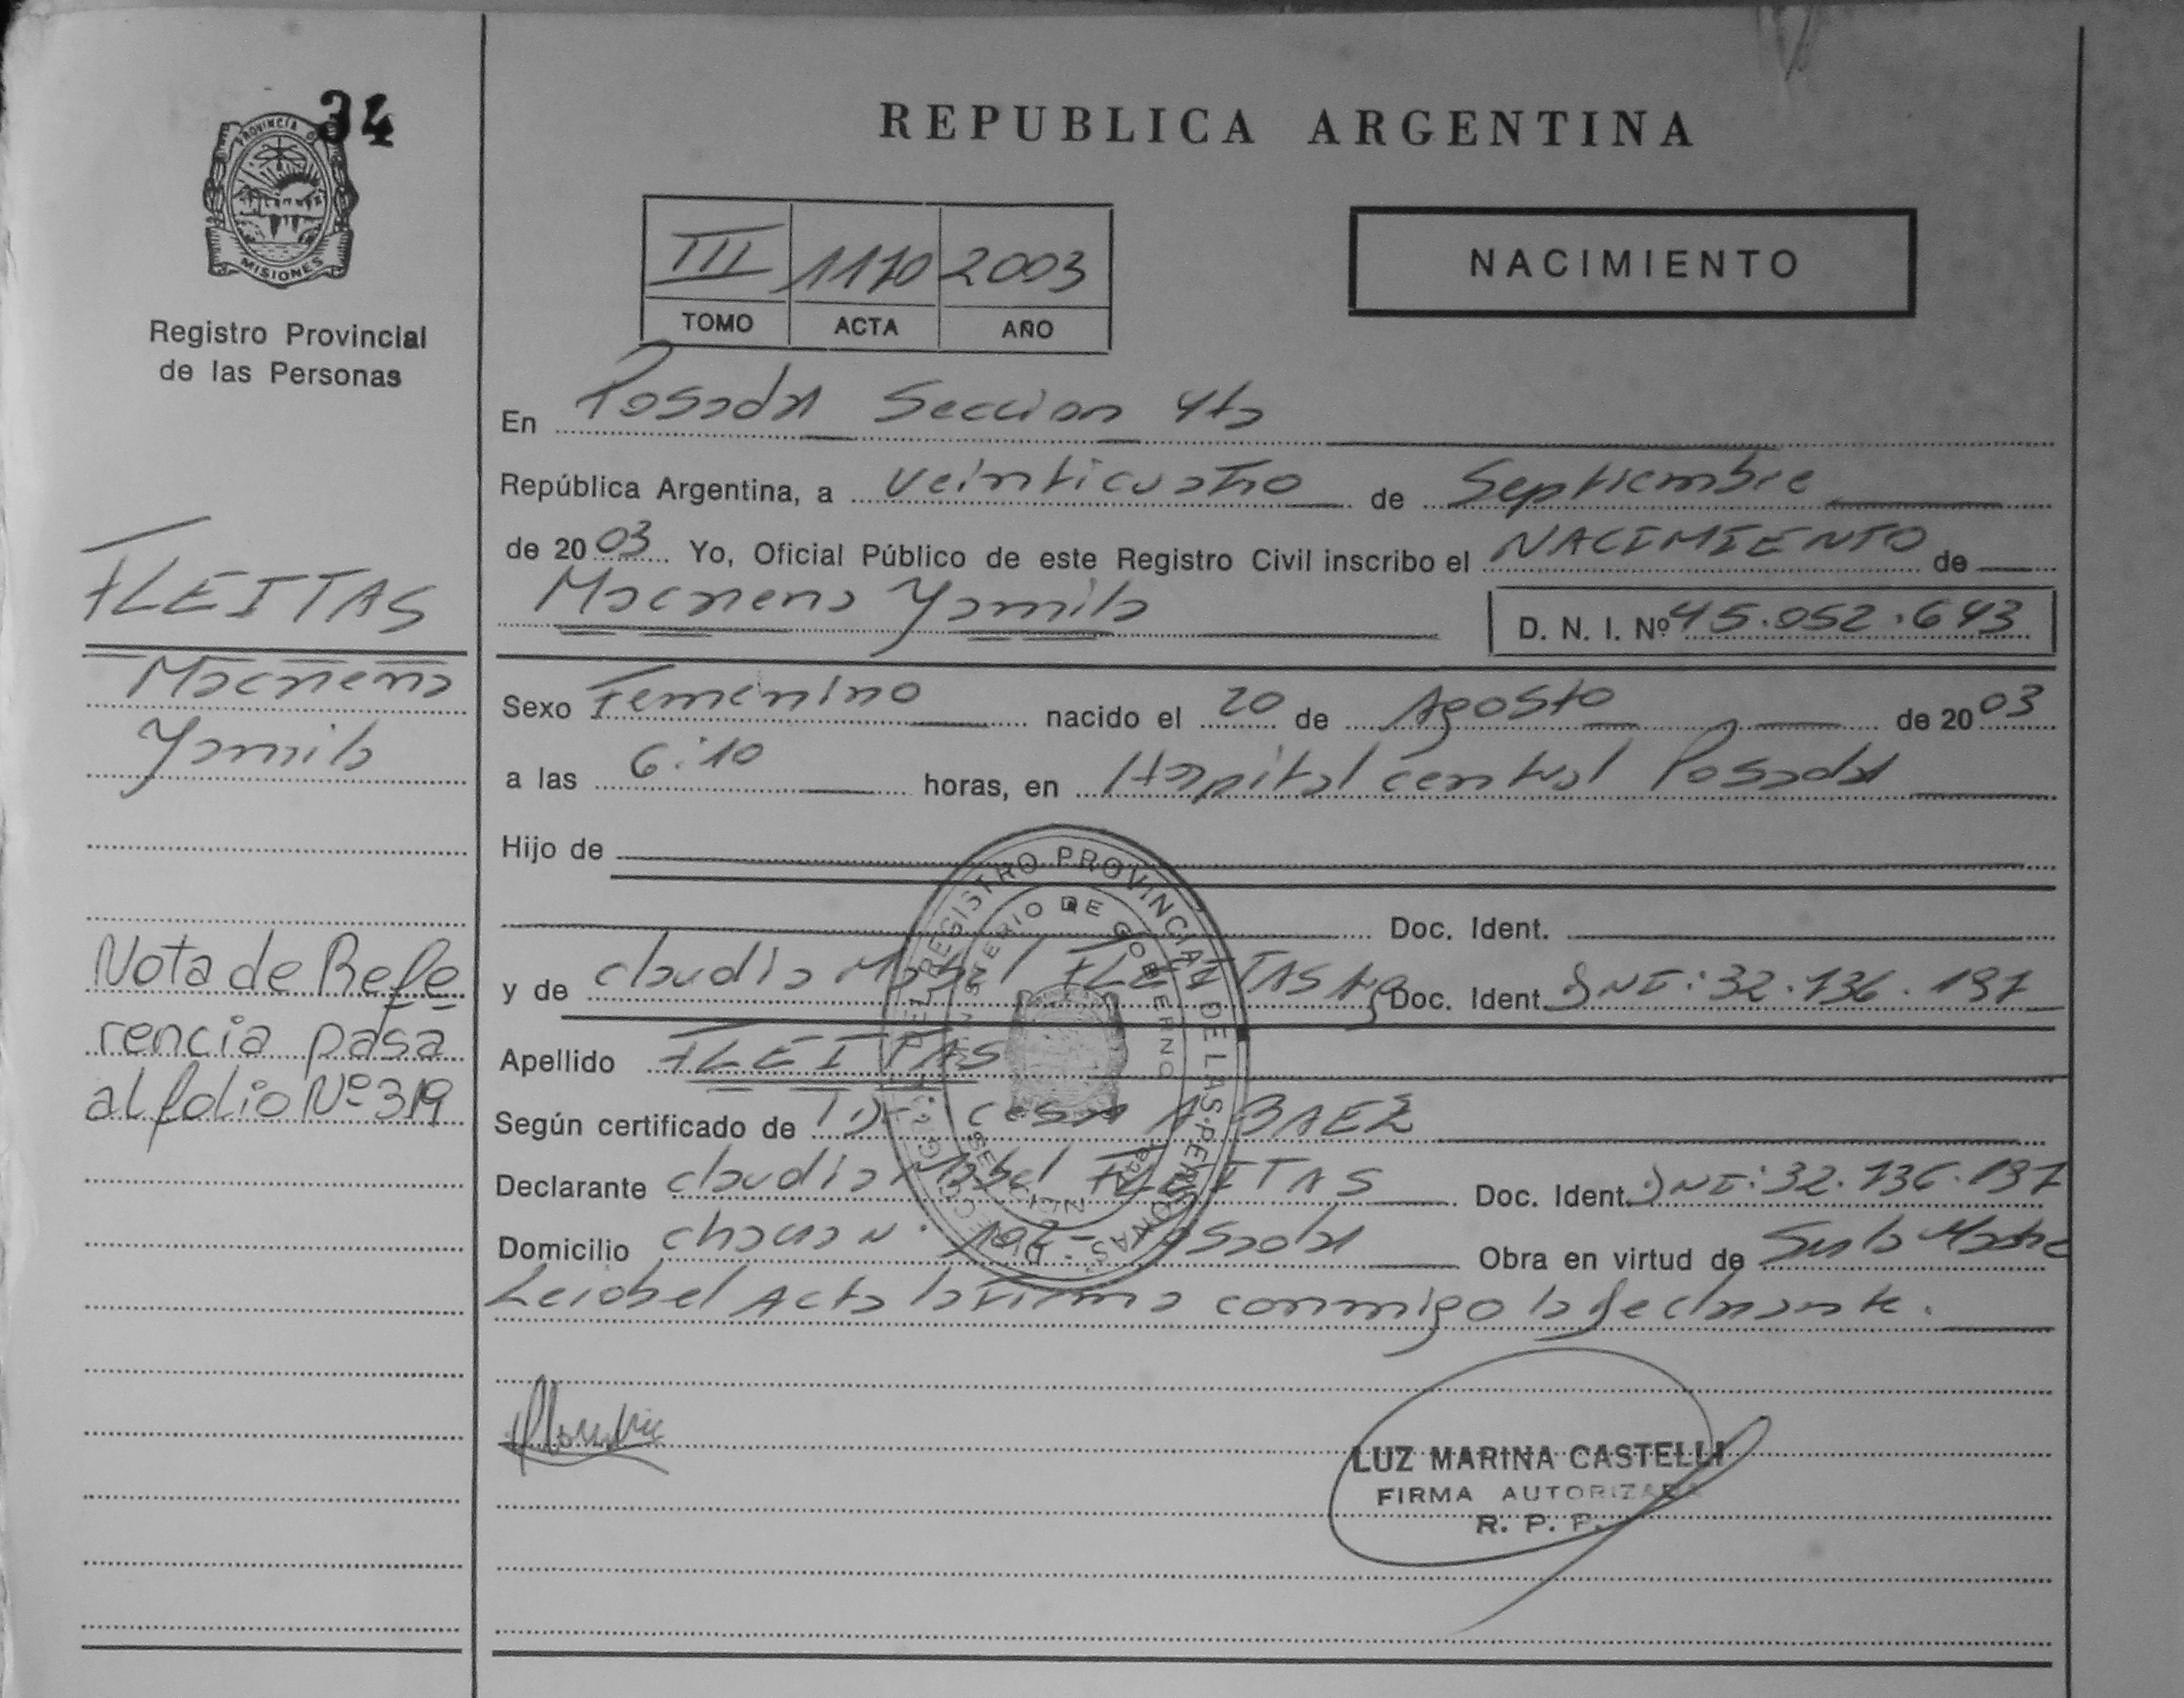 34
PROVINCIA D
MISIONES
Registro Provincial
de las Personas
REPUBLICA ARGENTINA
III 1170 2003
TOMO ACTA AÑO
NACIMIENTO
En Posadas Seccion 4ta
República Argentina, a veinticuatro de Septiembre
de 2003 Yo, Oficial Público de este Registro Civil inscribo el NACIMIENTO de
Macarena Yamila D. N. I. Nº 45.052.643
FLEITAS
Macarena
Yamila
Sexo Femenino nacido el 20 de Agosto de 2003
a las 6:10 horas, en Hospital central Posadas
Hijo de
Doc. Ident.
y de Claudia Mabel FLEITAS Arg Doc. Ident. DNI: 32.736.197
Apellido FLEITAS
Según certificado de Dr Cesar A BAEZ
Declarante Claudia Mabel FLEITAS Doc. Ident. DNI: 32.736.197
Domicilio 192 - Posadas Obra en virtud de Ser la Madre
Leida el Acta la firma conmigo la declarante.
Nota de Refe
rencia pasa
al folio Nº 319
REGISTRO PROVINCIAL DE LAS PERSONAS
LUZ MARINA CASTELLI
FIRMA AUTORIZADA
R. P. P.